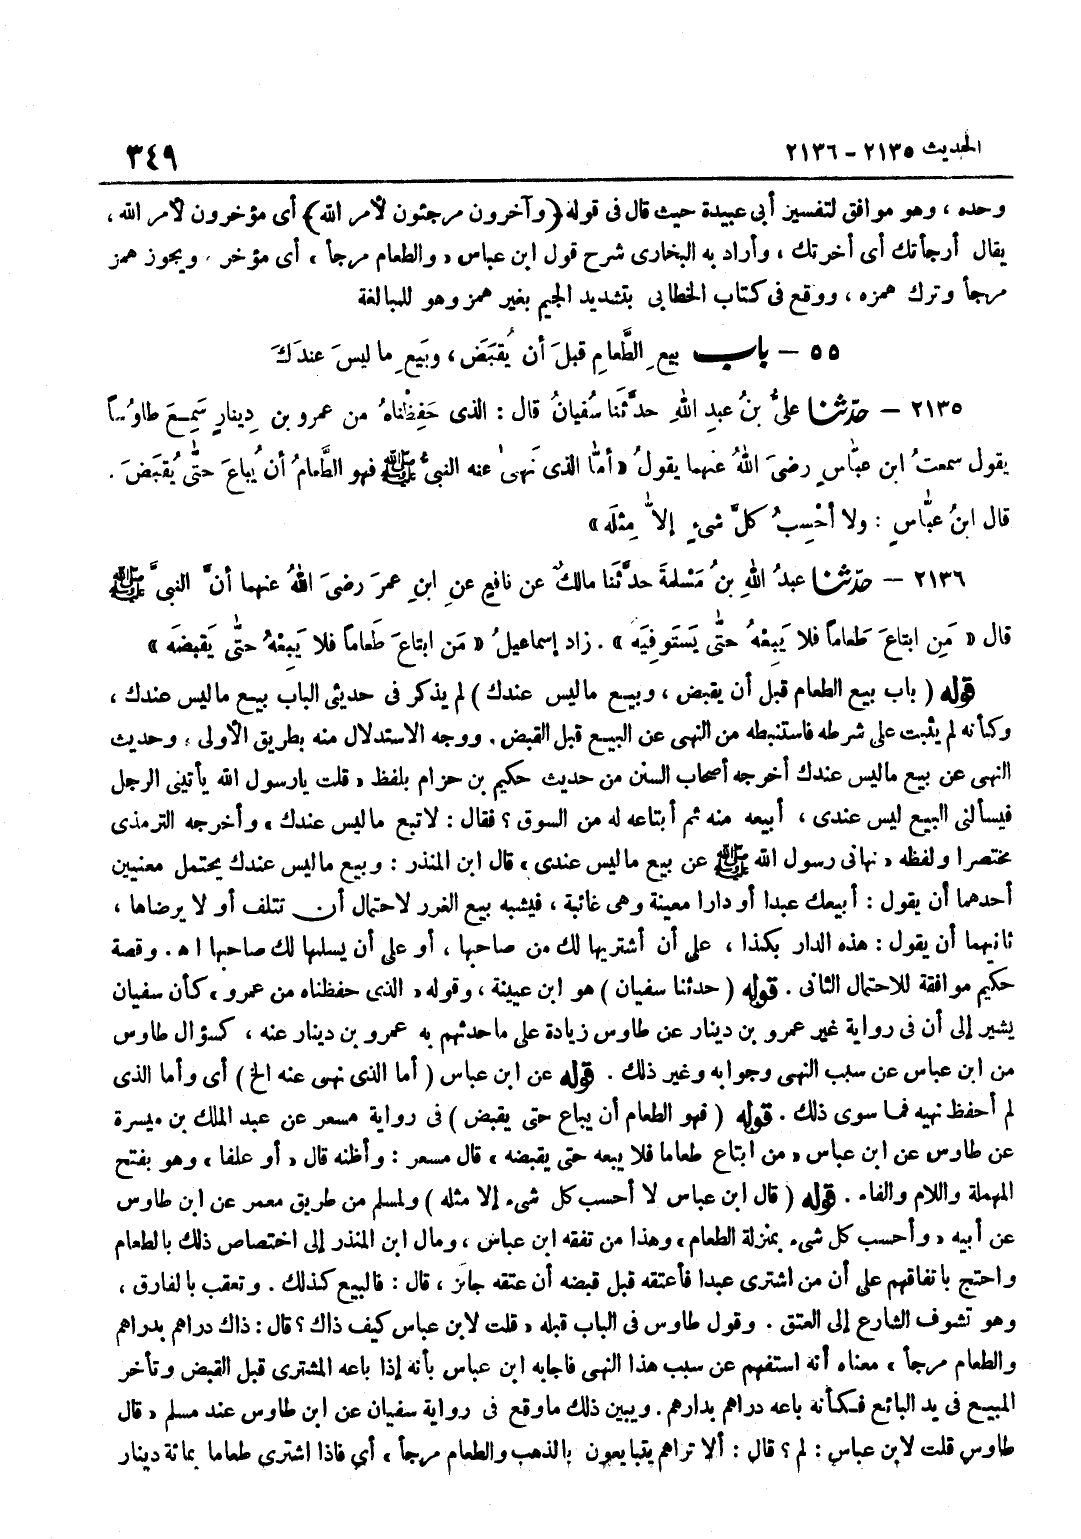 الحديث ٢١٣٥ - ٢١٣٦
٣٤٩
وحده ، وهو موافق لتفسير أبى عبيدة حيث قال فى قوله ﴿وآخرون مرجئون لأمر الله﴾ أى مؤخرون لأمر الله ،
يقال أرجأتك أى أخرتك ، وأراد به البخارى شرح قول ابن عباس « والطعام مرجأ ، أى مؤخر . ويجوز همز
مرجأ وترك همزه ، ووقع فى كتاب الخطابى بتشديد الجيم بغير همز وهو للمبالغة
٥٥ - باب بيعِ الطَّعامِ قبلَ أن يُقبَضَ ، وبَيعِ ما ليسَ عندَكَ
٢١٣٥ - حدّثنا علىُّ بنُ عبدِ اللهِ حدَّثَنا سُفيانُ قال : الذى حَفِظْناهُ من عمرو بن دِينارٍ سَمِعَ طاوُساً
يقول سمعتُ ابن عبّاسٍ رضىَ اللهُ عنهما يقولُ « أمّا الذى نَهىٰ عنه النبىُّ ﷺ فهو الطَّعامُ أن يُباعَ حتّى يُقبَضَ .
قال ابنُ عبّاسٍ : ولا أحْسِبُ كلَّ شىءٍ إلاّ مِثلَه »
٢١٣٦ - حدّثنا عبدُ اللهِ بنُ مَسْلمةَ حدَّثَنا مالكٌ عن نافعٍ عنِ ابنِ عمرَ رضىَ اللهُ عنهما أنَّ النبىَّ ﷺ
قال « مَنِ ابتاعَ طَعاماً فلا يَبِعْهُ حتّى يَستَوفِيَه » . زاد إسماعيلُ « مَن ابتاعَ طَعاماً فلا يَبِعْهُ حتّى يَقبِضَه »
قوله ( باب بيع الطعام قبل أن يقبض ، وبيع ما ليس عندك ) لم يذكر فى حديثى الباب بيع ما ليس عندك ،
وكأنه لم يثبت على شرطه فاستنبطه من النهى عن البيع قبل القبض . ووجه الاستدلال منه بطريق الأولى ، وحديث
النهى عن بيع ما ليس عندك أخرجه أصحاب السنن من حديث حكيم بن حزام بلفظ « قلت يا رسول الله يأتينى الرجل
فيسألنى البيع ليس عندى ، أبيعه منه ثم أبتاعه له من السوق ؟ فقال : لا تبع ما ليس عندك » وأخرجه الترمذى
مختصرا ولفظه « نهانى رسول الله ﷺ عن بيع ما ليس عندى » قال ابن المنذر : وبيع ما ليس عندك يحتمل معنيين
أحدهما أن يقول : أبيعك عبدا أو دارا معينة وهى غائبة ، فيشبه بيع الغرر لاحتمال أن تتلف أو لا يرضاها ،
ثانيهما أن يقول : هذه الدار بكذا ، على أن أشتريها لك من صاحبها ، أو على أن يسلمها لك صاحبها اه . وقصة
حكيم موافقة للاحتمال الثانى . قوله ( حدثنا سفيان ) هو ابن عيينة ، وقوله « الذى حفظناه من عمرو » كأن سفيان
يشير إلى أن فى رواية غير عمرو بن دينار عن طاوس زيادة على ما حدثهم به عمرو بن دينار عنه ، كسؤال طاوس
من ابن عباس عن سبب النهى وجوابه وغير ذلك . قوله عن ابن عباس ( أما الذى نهى عنه الخ ) أى وأما الذى
لم أحفظ نهيه فما سوى ذلك . قوله ( فهو الطعام أن يباع حتى يقبض ) فى رواية مسعر عن عبد الملك بن ميسرة
عن طاوس عن ابن عباس « من ابتاع طعاما فلا يبعه حتى يقبضه » قال مسعر : وأظنه قال « أو علفا » وهو بفتح
المهملة واللام والفاء . قوله ( قال ابن عباس لا أحسب كل شىء إلا مثله ) ولمسلم من طريق معمر عن ابن طاوس
عن أبيه « وأحسب كل شىء بمنزلة الطعام » وهذا من تفقه ابن عباس ، ومال ابن المنذر إلى اختصاص ذلك بالطعام
واحتج باتفاقهم على أن من اشترى عبدا فأعتقه قبل قبضه أن عتقه جائز ، قال : فالبيع كذلك . وتعقب بالفارق ،
وهو تشوف الشارع إلى العتق . وقول طاوس فى الباب قبله « قلت لابن عباس كيف ذاك ؟ قال : ذاك دراهم بدراهم
والطعام مرجأ ، معناه أنه استفهم عن سبب هذا النهى فأجابه ابن عباس بأنه إذا باعه المشترى قبل القبض وتأخر
المبيع فى يد البائع فكأنه باعه دراهم بدارهم . ويبين ذلك ما وقع فى رواية سفيان عن ابن طاوس عند مسلم « قال
طاوس قلت لابن عباس : لم ؟ قال : ألا تراهم يتبايعون بالذهب والطعام مرجأ ، أى فاذا اشترى طعاما بمائة دينار